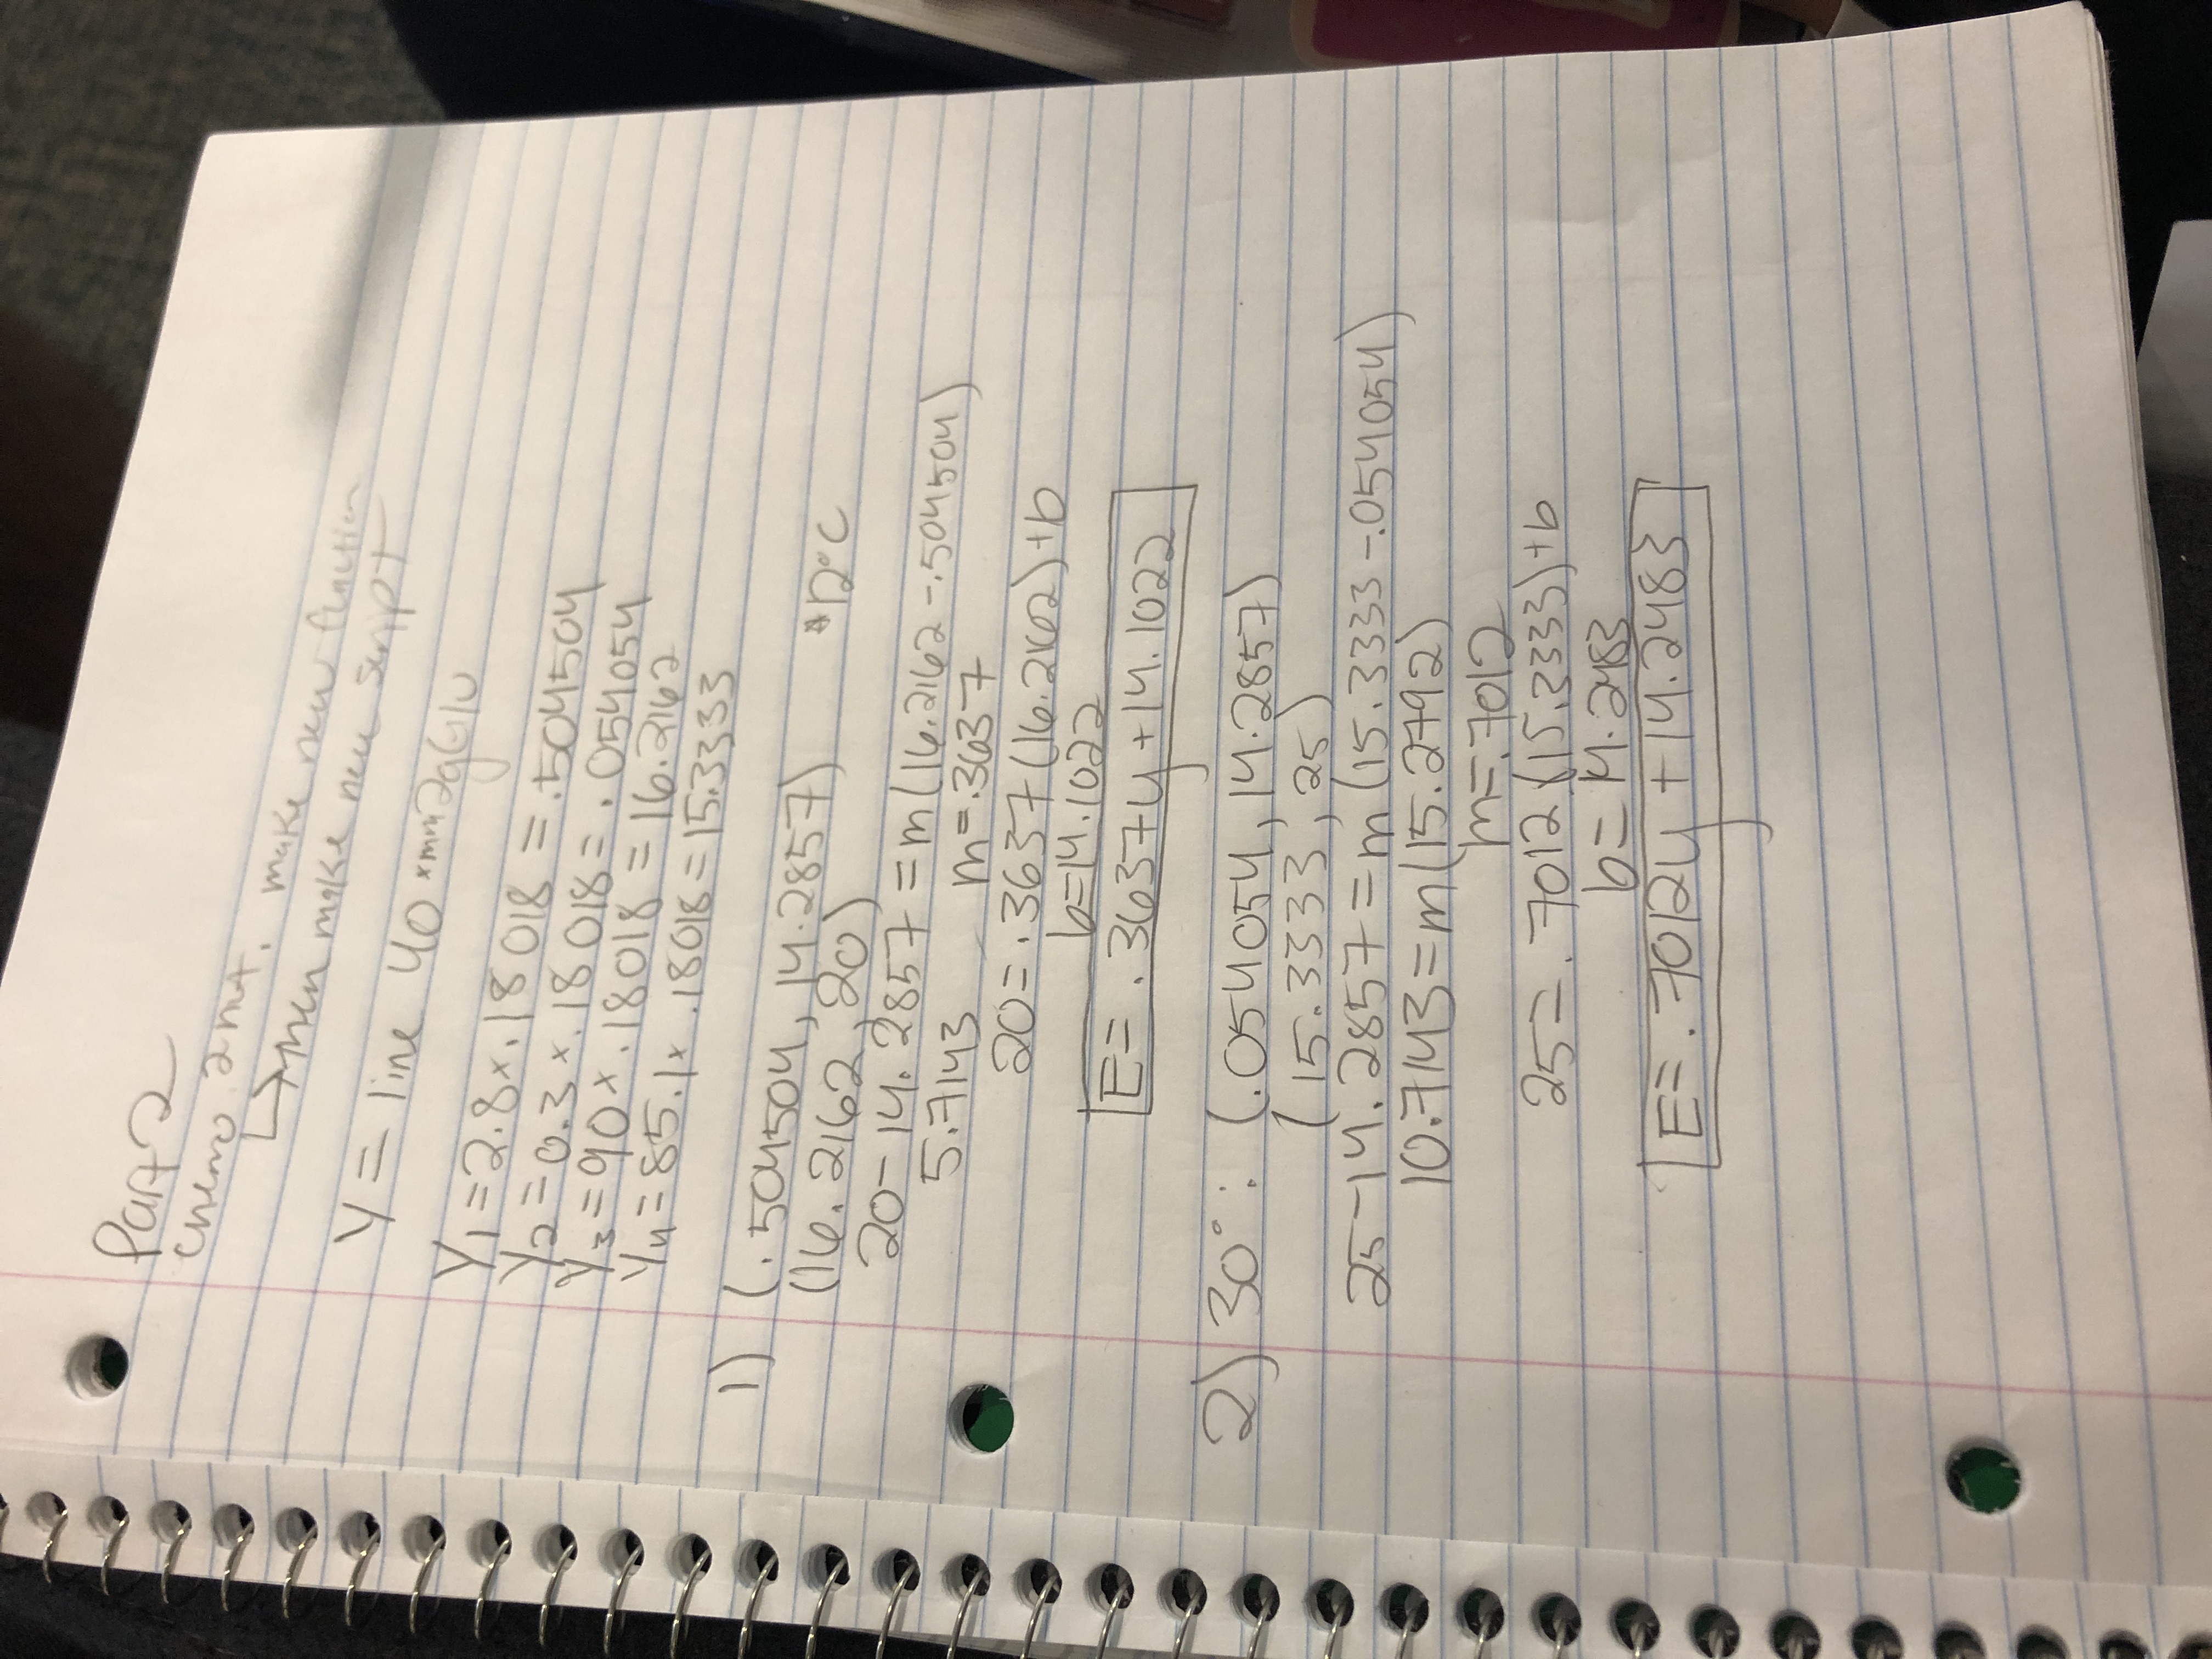 Part 2
chemo. 2 mt. make new function
↳ then make new script
Y = line 40 xmm2gGlu
Y1 = 2.8 x .18018 = .504504
Y2 = 0.3 x .18018 = .054054
Y3 = 90 x .18018 = 16.2162
Y4 = 85.1 x .18018 = 15.3333
1) (.504504, 14.2857) *12°C
(16.2162, 20)
20 - 14.2857 = m(16.2162 - .504504)
5.7143 m = .3637
20 = .3637(16.2162) + b
b = 14.1022
E = .3637y + 14.1022
2) 30°: (.054054, 14.2857)
(15.3333, 25)
25 - 14.2857 = m(15.3333 - .054054)
10.7143 = m(15.2792)
m = .7012
25 = .7012(15.3333) + b
b = 14.2483
E = .7012y + 14.2483